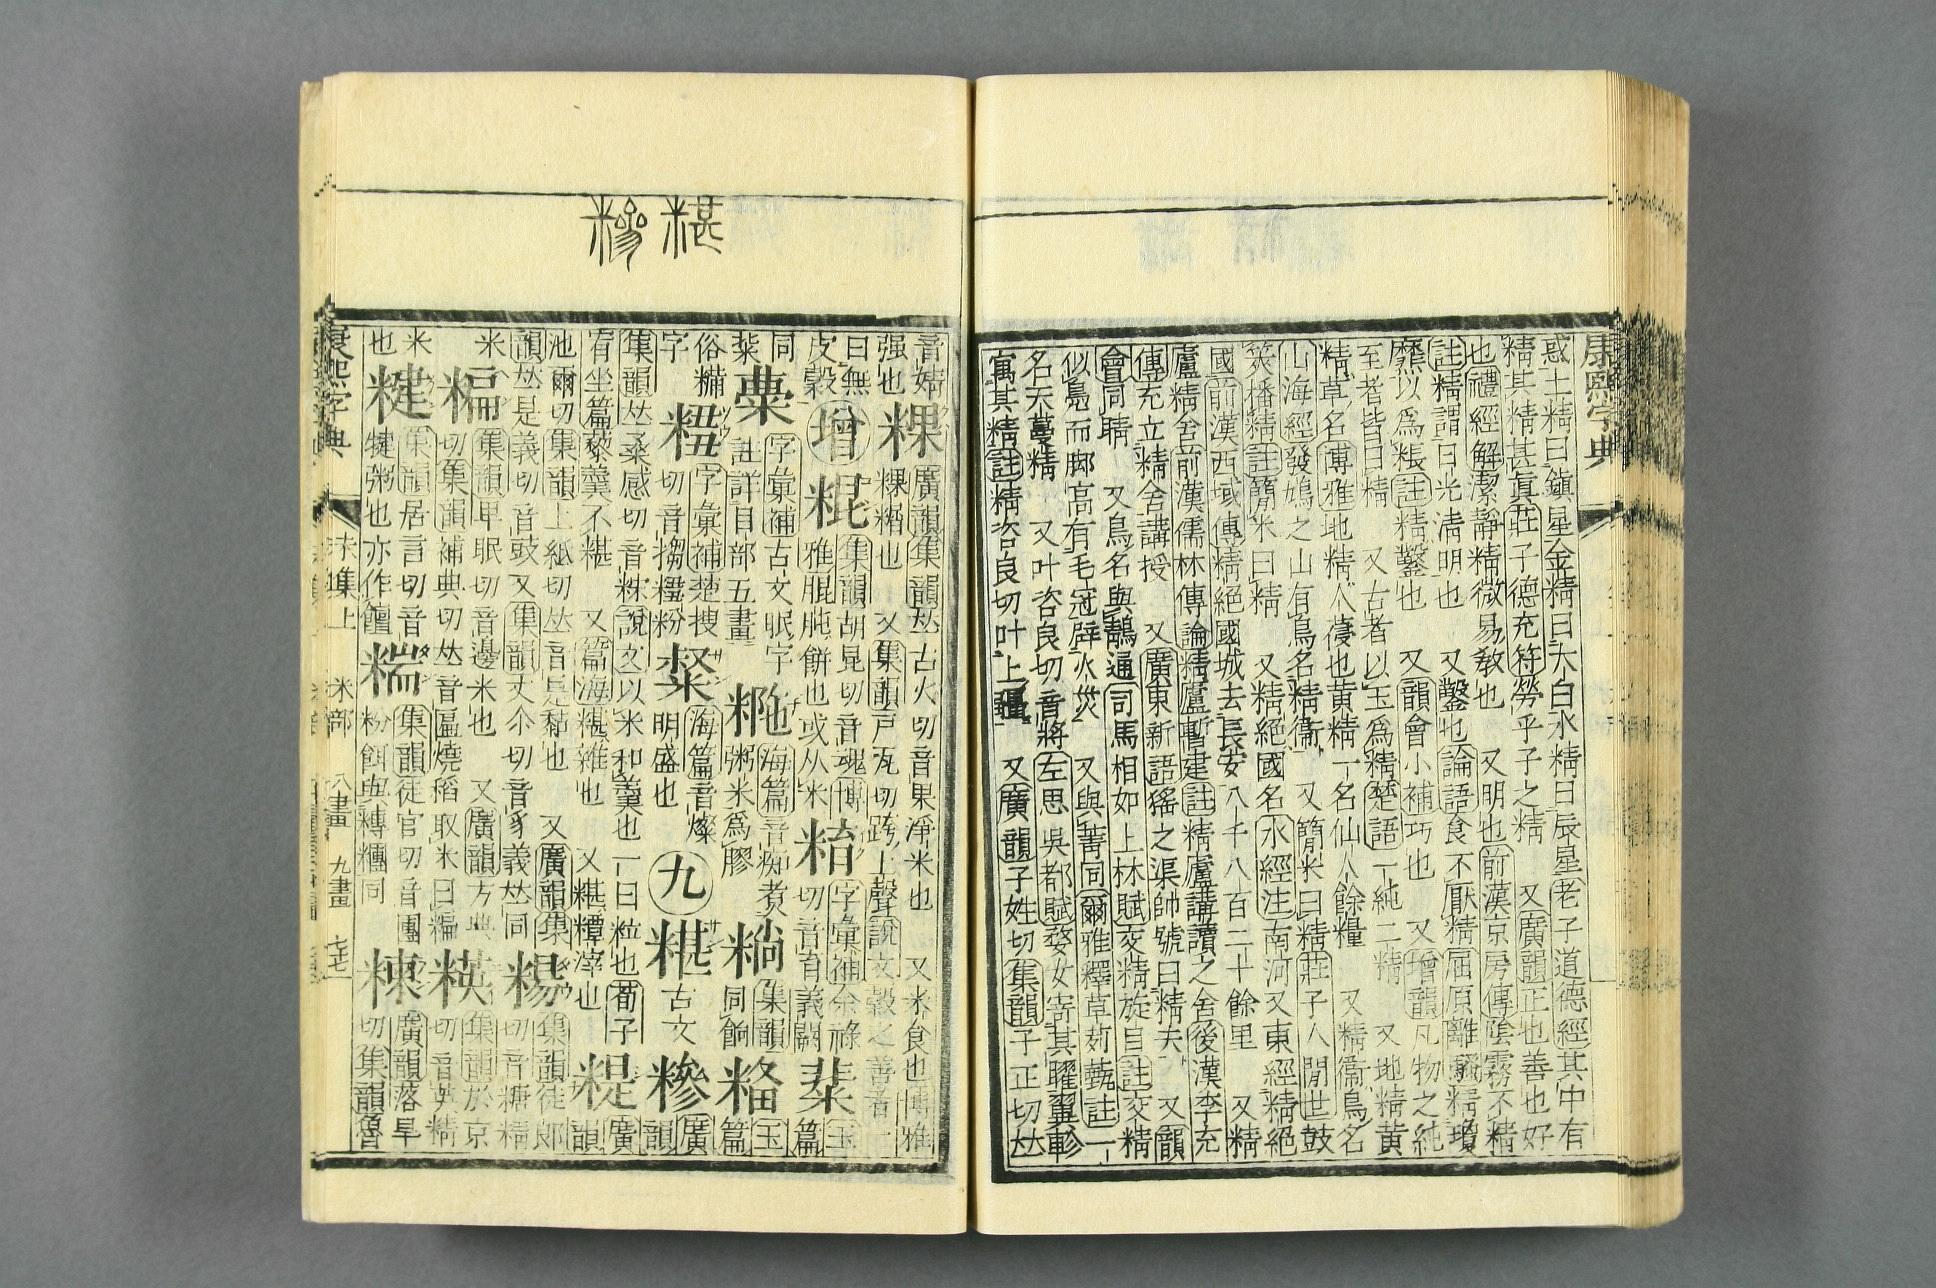 康熙字典
惑土精曰鎭星金精曰太白水精曰辰星老子道德經其中有
精其精甚眞莊子德充符勞乎子之精 又廣韻正也善也好
也禮經解潔靜精微易敎也 又明也前漢京房傳陰霧不精
註精謂日光淸明也 又鑿也論語食不厭精屈原離騷精瓊
爢以爲粻註精鑿也 又韻會小補巧也 又增韻凡物之純
至者皆曰精 又古者以玉爲精楚語一純二精 又地精黃
精草名博雅地精人葠也黃精一名仙人餘糧 又精衞鳥名
山海經發鳩之山有鳥名精衞 又簡米曰精莊子人閒世鼓
筴播精註簡米曰精 又精絕國名水經注南河又東經精絕
國前漢西域傳精絕國城去長安八千八百二十餘里 又精
廬精舍前漢儒林傳論精廬暫建註精廬講讀之舍後漢李充
傳充立精舍講授 又廣東新語猺之渠帥號曰精夫 又韻
會同睛 又鳥名與鶄通司馬相如上林賦交精旋目註交精
似鳧而脚高有毛冠辟火災 又與菁同爾雅釋草茢薽註一
名天蔓精 又叶咨良切音將左思吳都賦婺女寄其曜翼軫
寓其精註精咨良切叶上疆 又廣韻子姓切集韻子正切𠀤
音婧 粿 廣韻集韻𠀤古火切音果淨米也 又米食也博雅
强也 粿䊗也 又集韻戸瓦切跨上聲說文穀之善者一
曰無皮穀 增 棍 集韻胡昆切音魂博雅䐊肫餠也或从米 字彙補余祿切音育義闕 玉篇
同 字彙補古文眠字註詳目部五畫 海篇音痴煮粥米爲膠 集韻同餉 玉篇
俗糒字 字彙補楚搜切音搊粉 海篇音燦明盛也 九 糂 古文 糝 廣韻
集韻𠀤桑感切音糝說文以米和羹也一曰粒也荀子 廣韻
宥坐篇藜羹不糂 又篇海糂雜也 又糂糣滓也 韻
池爾切集韻上紙切𠀤音是黏也 又廣韻集
韻𠀤是義切音豉又集韻丈尒切音豸義𠀤同 集韻徒郞切音糖精
米 糄 集韻畢眠切音邊米也 又廣韻方典切集韻補典切𠀤音匾燒稻取米曰糄 集韻於京切音英精
米也 糋 集韻居言切音犍粥也亦作饘 糰 集韻徒官切音團粉餌與糐糰同 楝 廣韻落旱切集韻魯
康熙字典 未集上 米部 八畫 九畫